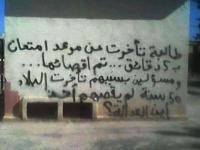 طالبة تأخرت عن موعد امتحان
بـ 5 دقائق... تم اقصائها...
ومسؤلين بسببهم تأخرت البلاد
50 سنة لم يقصهم أحد
أين العدالة؟